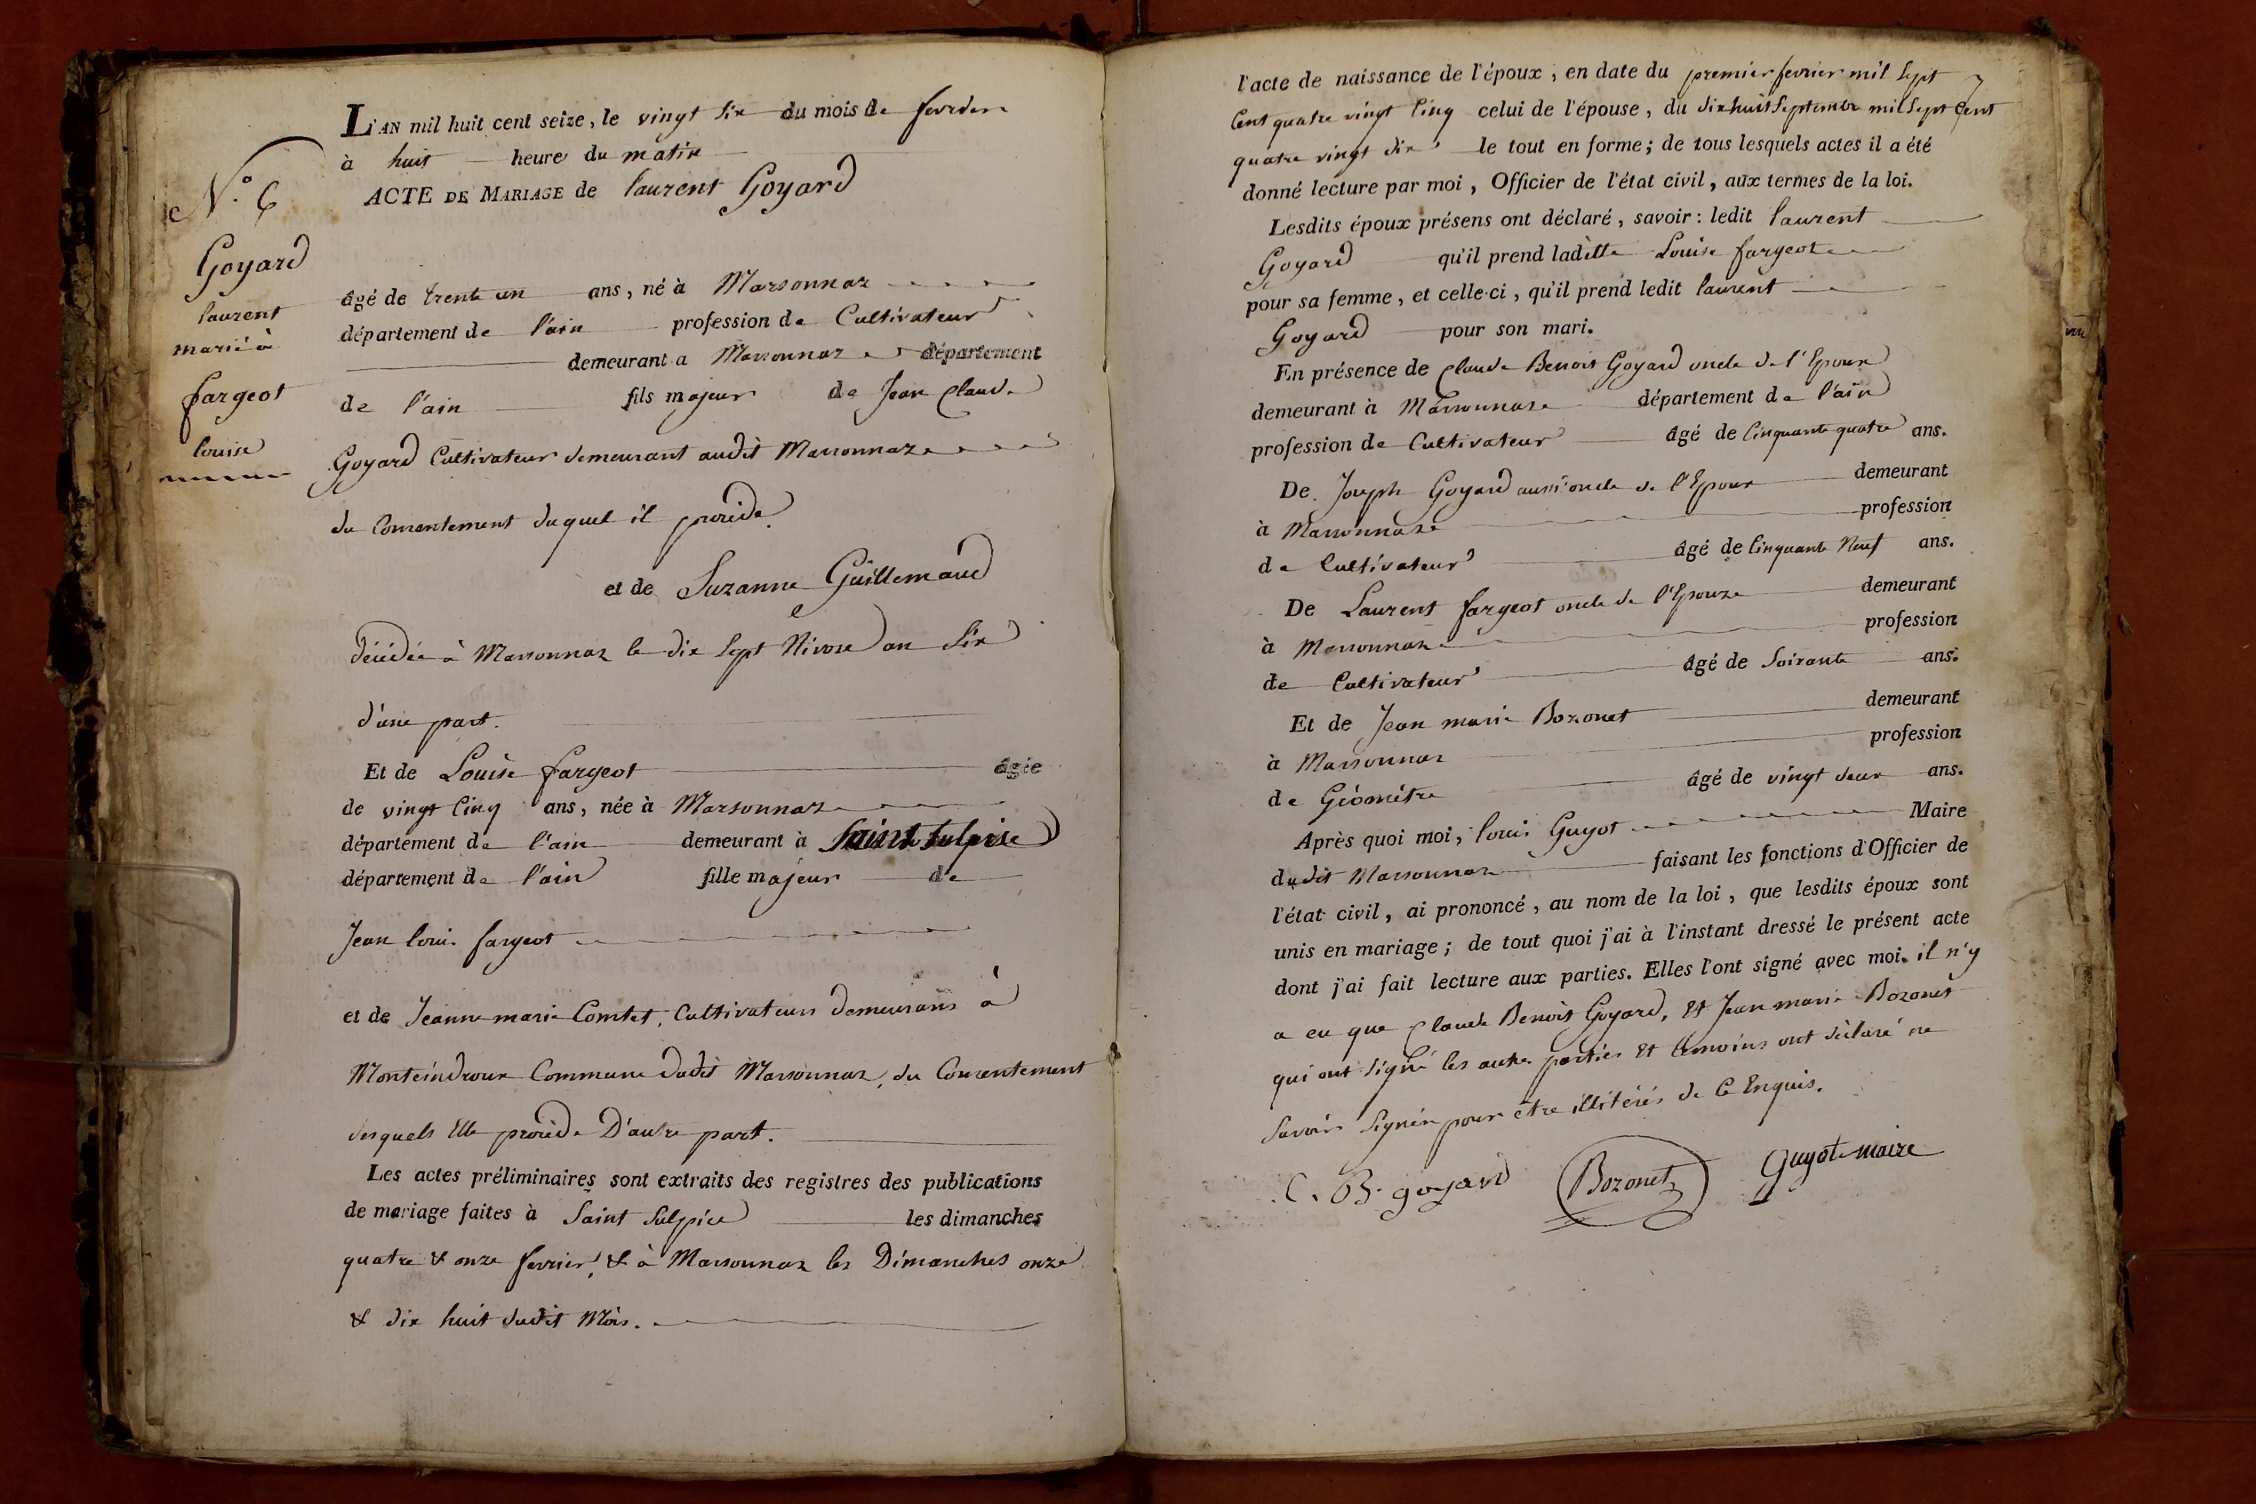 N.° 6
Goyard
laurent
marié à
fargeot
louise
L'AN mil huit cent seize, le vingt six du mois de fevrier
à huit heure du matin
ACTE DE MARIAGE de laurent Goyard
âgé de trente un ans, né à Marsonnaz
département de l'ain profession de Cultivateur
demeurant a Marsonnaz département
de l'ain fils majeur de Jean Claude
Goyard Cultivateur demeurant audit Marsonnaz
du Consentement duquel il procède
et de Suzanne Guillemaud
décédée à Marsonnaz le dix sept Nivose an six
d'une part.
Et de Louise fargeot âgée
de vingt cinq ans, née à Marsonnaz
département de l'ain demeurant à Saint Sulpice
département de l'ain fille majeur de
Jean louis fargeot
et de Jeanne marie Comtet, Cultivateurs demeurans à
Monteindroux Commune dudit Marsonnaz, du Consentement
desquels Elle procède D'autre part.
Les actes préliminaires sont extraits des registres des publications
de mariage faites à Saint Sulpice les dimanches
quatre & onze fevrier, & à Marsonnaz les Dimanches onze
& dix huit dudit Mois.
l'acte de naissance de l'époux, en date du premier fevrier mil sept
Cent quatre vingt Cinq celui de l'épouse, du dix huit Septembre mil sept Cent
quatre vingt dix le tout en forme; de tous lesquels actes il a été
donné lecture par moi, Officier de l'état civil, aux termes de la loi.
Lesdits époux présens ont déclaré, savoir: ledit laurent
Goyard qu'il prend laditte Louise fargeot
pour sa femme, et celle-ci, qu'il prend ledit laurent
Goyard pour son mari.
En présence de Claude Benoit Goyard oncle de l'Epoux
demeurant à Marsonnaz département de l'ain
profession de Cultivateur âgé de Cinquante quatre ans.
De Joseph Goyard aussi oncle de l'Epoux demeurant
à Marsonnaz profession
de Cultivateur âgé de Cinquante Neuf ans.
De Laurent fargeot oncle de l'Epouze demeurant
à Marsonnaz profession
de Cultivateur âgé de Soixante ans.
Et de Jean marie Bozonet demeurant
à Marsonnaz profession
de Géomètre âgé de vingt deux ans.
Après quoi moi, louis Guyot Maire
dudit Marsonnaz faisant les fonctions d'Officier de
l'état civil, ai prononcé, au nom de la loi, que lesdits époux sont
unis en mariage; de tout quoi j'ai à l'instant dressé le présent acte
dont j'ai fait lecture aux parties. Elles l'ont signé avec moi. il n'y
a eu que Claude Benoit Goyard, Et Jean marie Bozonet
qui ont signé les autres parties Et temoins ont déclaré ne
savoir signer pour être illitérés de Ce Enquis.
C. B. goyard Bozonet Guyot maire